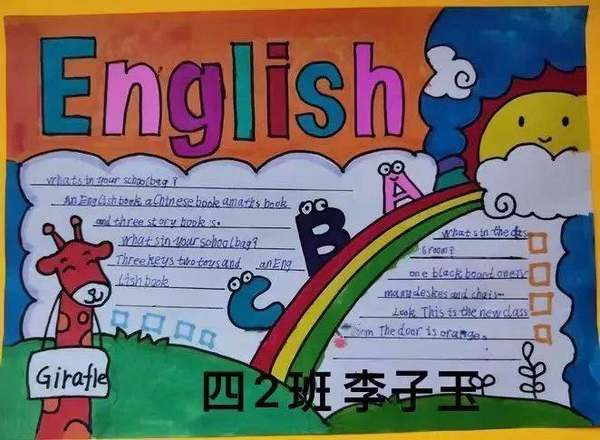 English
A
B
C
whats in your schoolbag?
An English book a Chinese book a maths book
and three story book is.
whats in your schoolbag?
Three keys two toys and an Eng
lish book
whats in the clas
sroom?
one black board one TV
many deskes and chais
Look This is the new class
room The door is orange.
Giraffe
四2班 李子玉